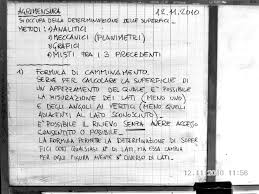 AGRIMENSURA 12.11.2010
SI OCCUPA DELLA DETERMINAZIONE DELLE SUPERFICI.
METODI: 1) ANALITICI
2) MECCANICI (PLANIMETRI)
3) GRAFICI
4) MISTI TRA I 3 PRECEDENTI
1) FORMULA DI CAMMINAMENTO.
SERVE PER CALCOLARE LA SUPERFICIE DI
UN APPEZZAMENTO DEL QUALE E' POSSIBILE
LA MISURAZIONE DEI LATI (MENO UNO)
E DEGLI ANGOLI AI VERTICI (MENO QUELLI
ADIACENTI AL LATO SCONOSCIUTO).
E' POSSIBILE IL RILIEVO SENZA AVERE ACCESO
CONSENTITO O POSSIBILE.
LA FORMULA PERMETTE LA DETERMINAZIONE DI SUPER
FICI CON QUALSIASI N° DI LATI MA ESSA CAMBIA
PER OGNI FIGURA AVENTE N° DIVERSO DI LATI.
12-11-2010 11:56